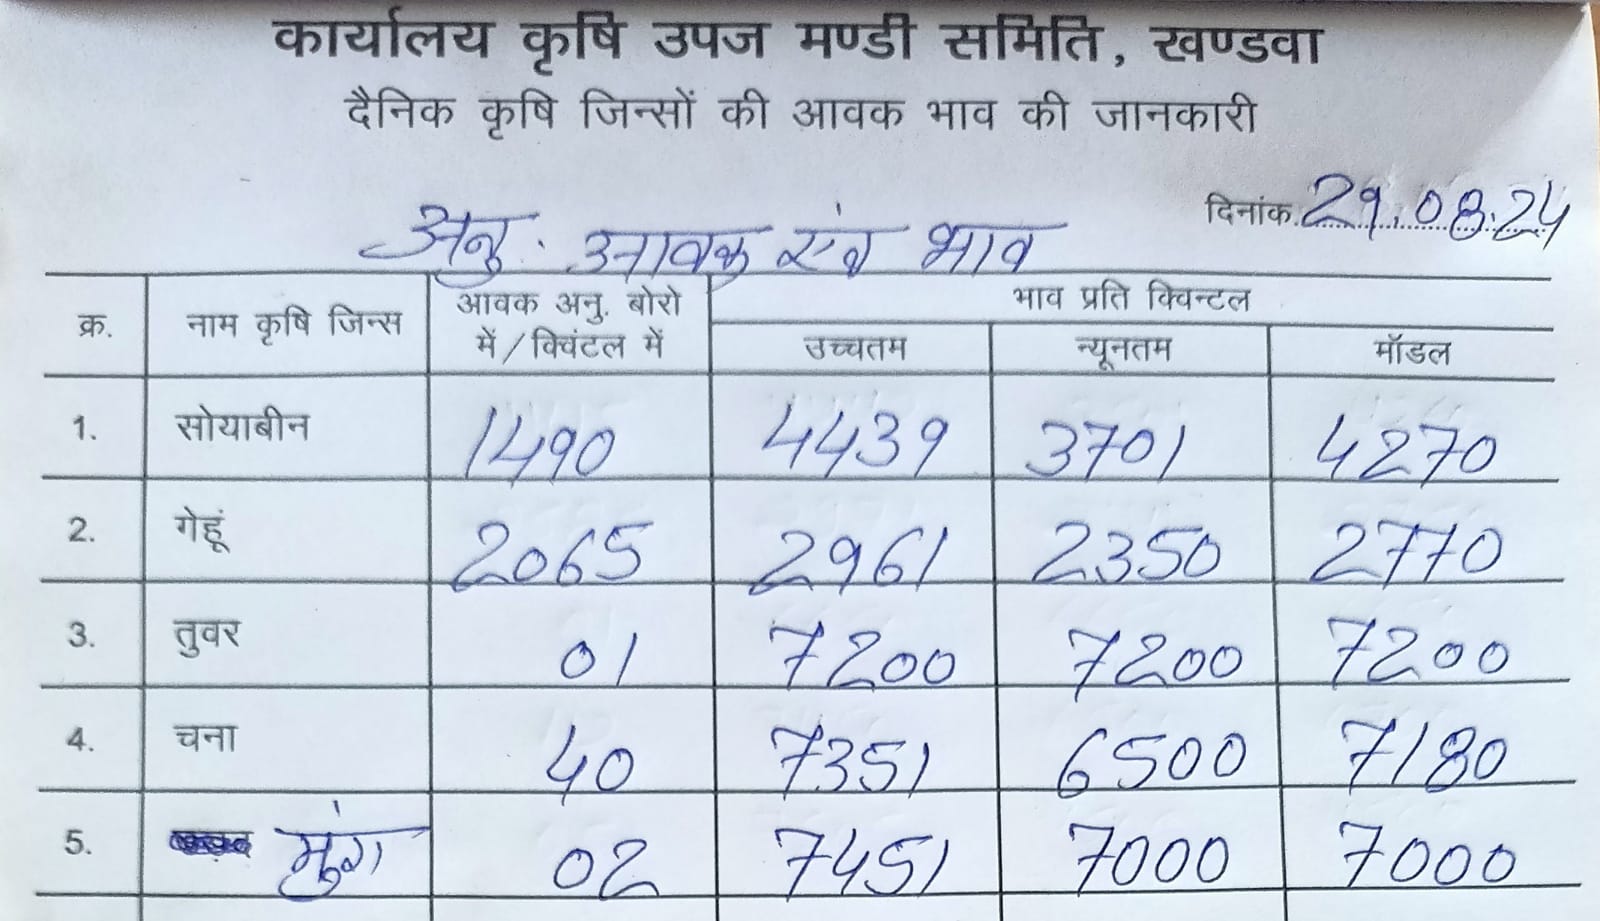 कार्यालय कृषि उपज मण्डी समिति, खण्डवा
दैनिक कृषि जिन्सों की आवक भाव की जानकारी
दिनांक.29.08.24
अनु. आवक एंव भाव
क्र. नाम कृषि जिन्स आवक अनु. बोरो में/क्विंटल में भाव प्रति क्विन्टल
उच्चतम न्यूनतम मॉडल
1. सोयाबीन 1490 4439 3701 4270
2. गेहूं 2065 2961 2350 2770
3. तुवर 01 7200 7200 7200
4. चना 40 7351 6500 7180
5. मुंग 02 7451 7000 7000